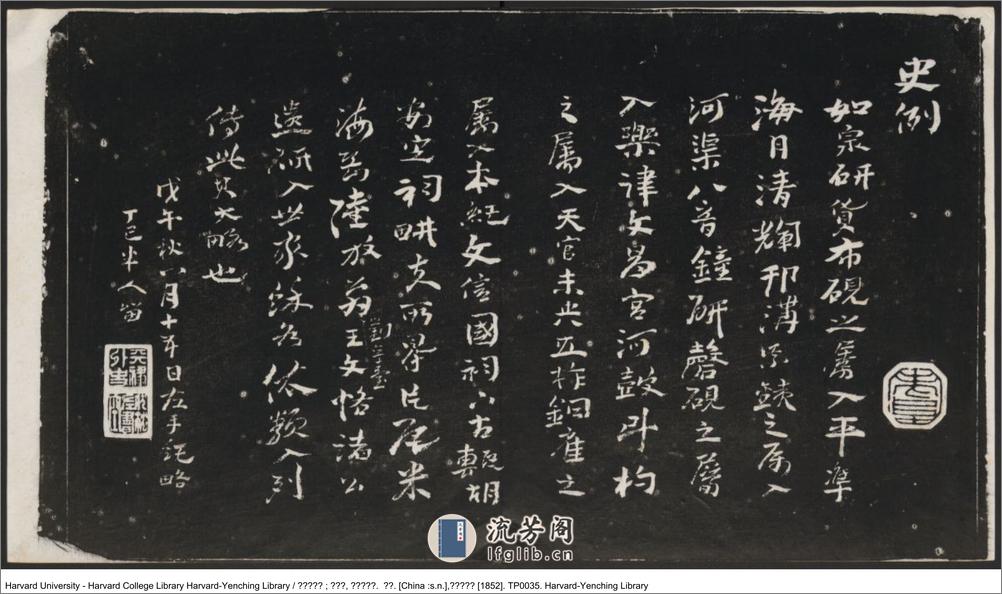 史例
如泉研貨布硯之屬入平準
海月清輝邗溝 鐵之屬入
河渠八音鐘研磬硯之屬
入樂律文昌宮河鼓斗杓
之屬入天官未央五柞銅雀之
屬入本紀文信國祠六古
安定祠畊夫所 米
海岳陸放翁王文恪諸公
遺研入世家 依類入列
傳此其大略也
戊午秋八月十有 日左手記略
丁巳半人
流芳阁
lfglib.cn
Harvard University - Harvard College Library Harvard-Yenching Library / ????? ; ???, ?????. ??. [China :s.n.],????? [1852]. TP0035. Harvard-Yenching Library